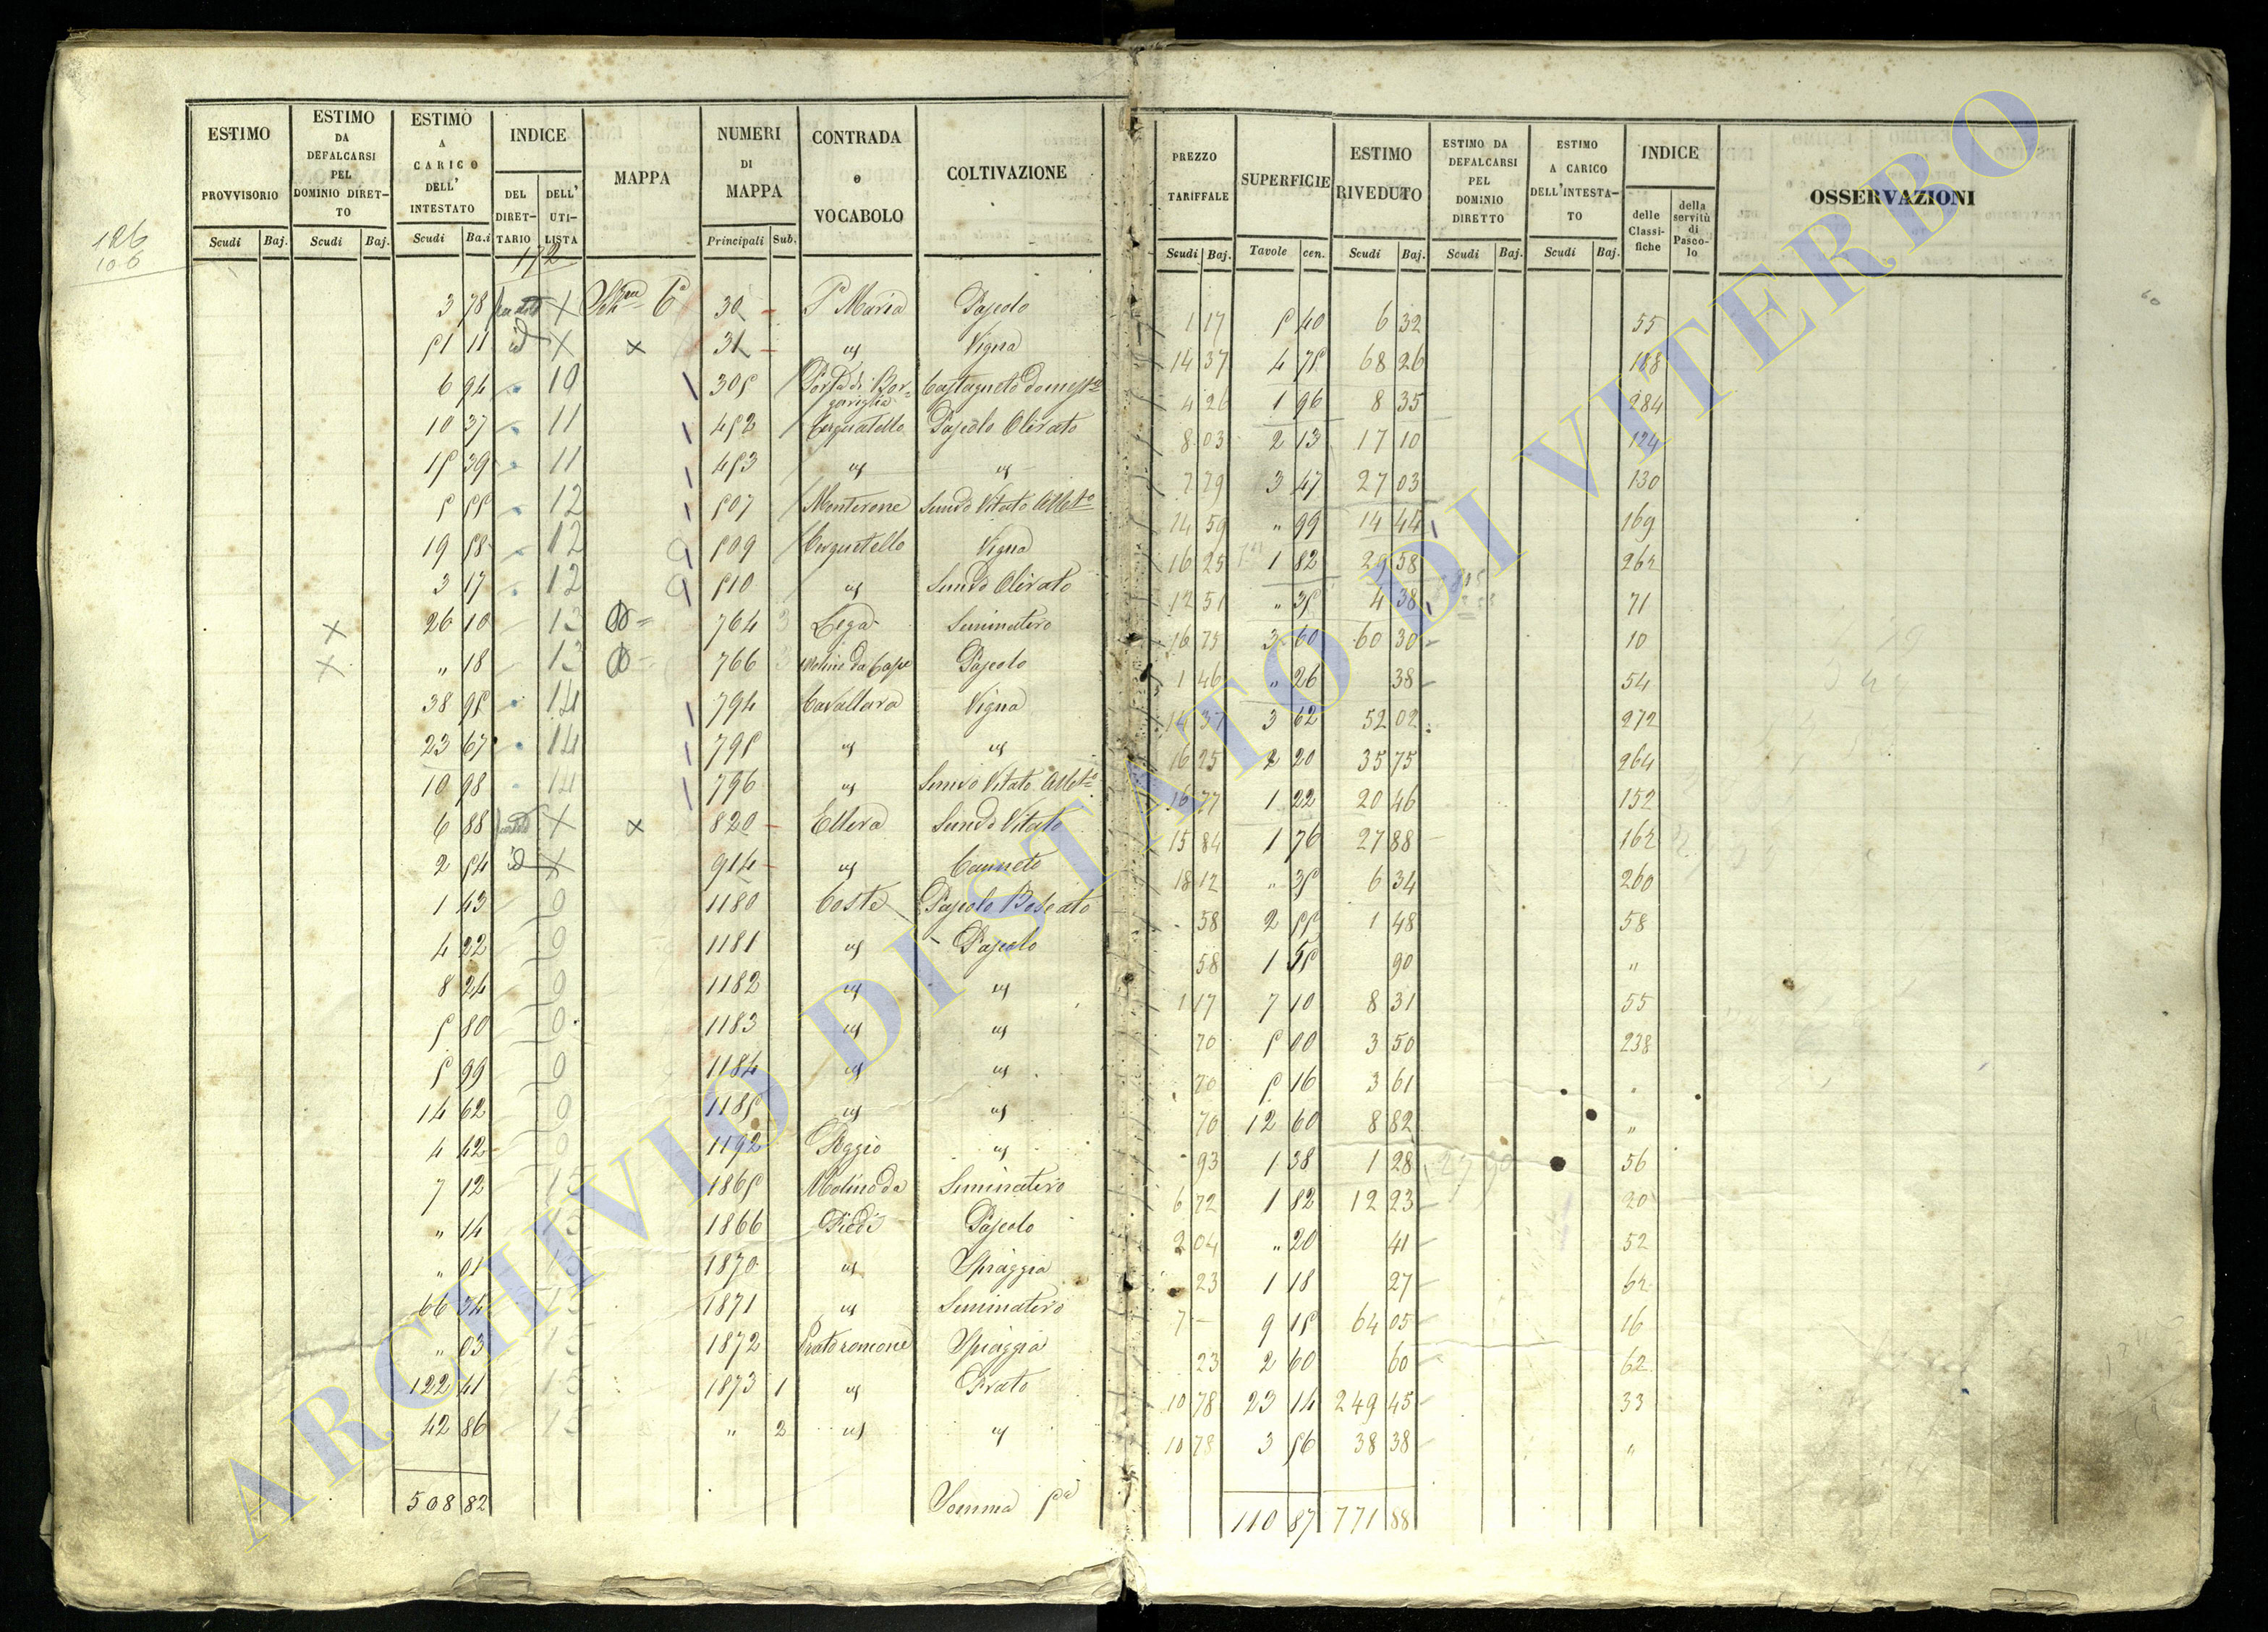 ESTIMO PROVVISORIO Scudi Baj.
ESTIMO DA DEFALCARSI PEL DOMINIO DIRET-TO Scudi Baj.
ESTIMO A CARICO DELL' INTESTATO Scudi Ba.i
INDICE DEL DIRET-TARIO DELL' UTI-LISTA
MAPPA
NUMERI DI MAPPA Principali Sub.
CONTRADA o VOCABOLO
COLTIVAZIONE
PREZZO TARIFFALE Scudi Baj.
SUPERFICIE Tavole cen.
ESTIMO RIVEDUTO Scudi Baj.
ESTIMO DA DEFALCARSI PEL DOMINIO DIRETTO Scudi Baj.
ESTIMO A CARICO DELL'INTESTA-TO Scudi Baj.
INDICE delle Classi-fiche della servitù di Pasco-lo
OSSERVAZIONI
126
106
172
3 78 X 30 Pa Maria Pascolo 1 17 5 40 6 32 55
51 11 id X x 31 us Vigna 14 37 4 75 68 26 188
6 94 10 305 Castagneto Domestco 4 26 1 96 8 35 284
10 37 11 452 Pascolo Olivato 8 03 2 13 17 10 124
15 39 11 453 us us 7 79 3 47 27 03 130
5 55 12 507 Monterone Semvo Vitato Albto 14 59 " 99 14 44 169
19 58 12 509 Cerquetello Vigna 16 25 1 82 29 58 264
3 17 12 510 us Semvo Olivato 12 51 " 35 4 38 71
X 26 10 13 764 3 Lega Seminativo 16 75 3 60 60 30 10
X " 18 13 766 3 Pascolo 1 46 " 26 38 54
38 95 14 794 Cavallara Vigna 14 37 3 62 52 02 272
23 67 14 795 us us 16 25 2 20 35 75 264
10 98 14 796 us Semvo Vitato Albto 16 77 1 22 20 46 152
6 88 X x 820 Ellera Semvo Vitato 15 84 1 76 27 88 162
2 54 id X 914 us Canneto 18 12 " 35 6 34 260
1 43 0 1180 Coste Pascolo Boscato 58 2 55 1 48 58
4 22 0 1181 us Pascolo 58 1 55 90 "
8 24 0 1182 us us 1 17 7 10 8 31 55
5 80 0 1183 us us 70 5 00 3 50 238
5 99 0 1184 us us 70 5 16 3 61 "
14 62 0 1185 us us 70 12 60 8 82 "
4 42 0 1192 Poggio us 93 1 38 1 28 56
7 12 15 1865 Molino da Seminativo 6 72 1 82 12 23 20
" 14 15 1866 Piedi Pascolo 2 04 " 20 41 52
" 01 15 1870 us Spiaggia 23 1 18 27 62
66 34 15 1871 us Seminativo 7 - 9 15 64 05 16
" 03 15 1872 Prato roncone Spiaggia 23 2 60 60 62
122 41 15 1873 1 us Prato 10 78 23 14 249 45 33
42 86 15 " 2 us us 10 78 3 56 38 38 "
508 82 Somma Pa 110 87 771 88
ARCHIVIO DI STATO DI VITERBO